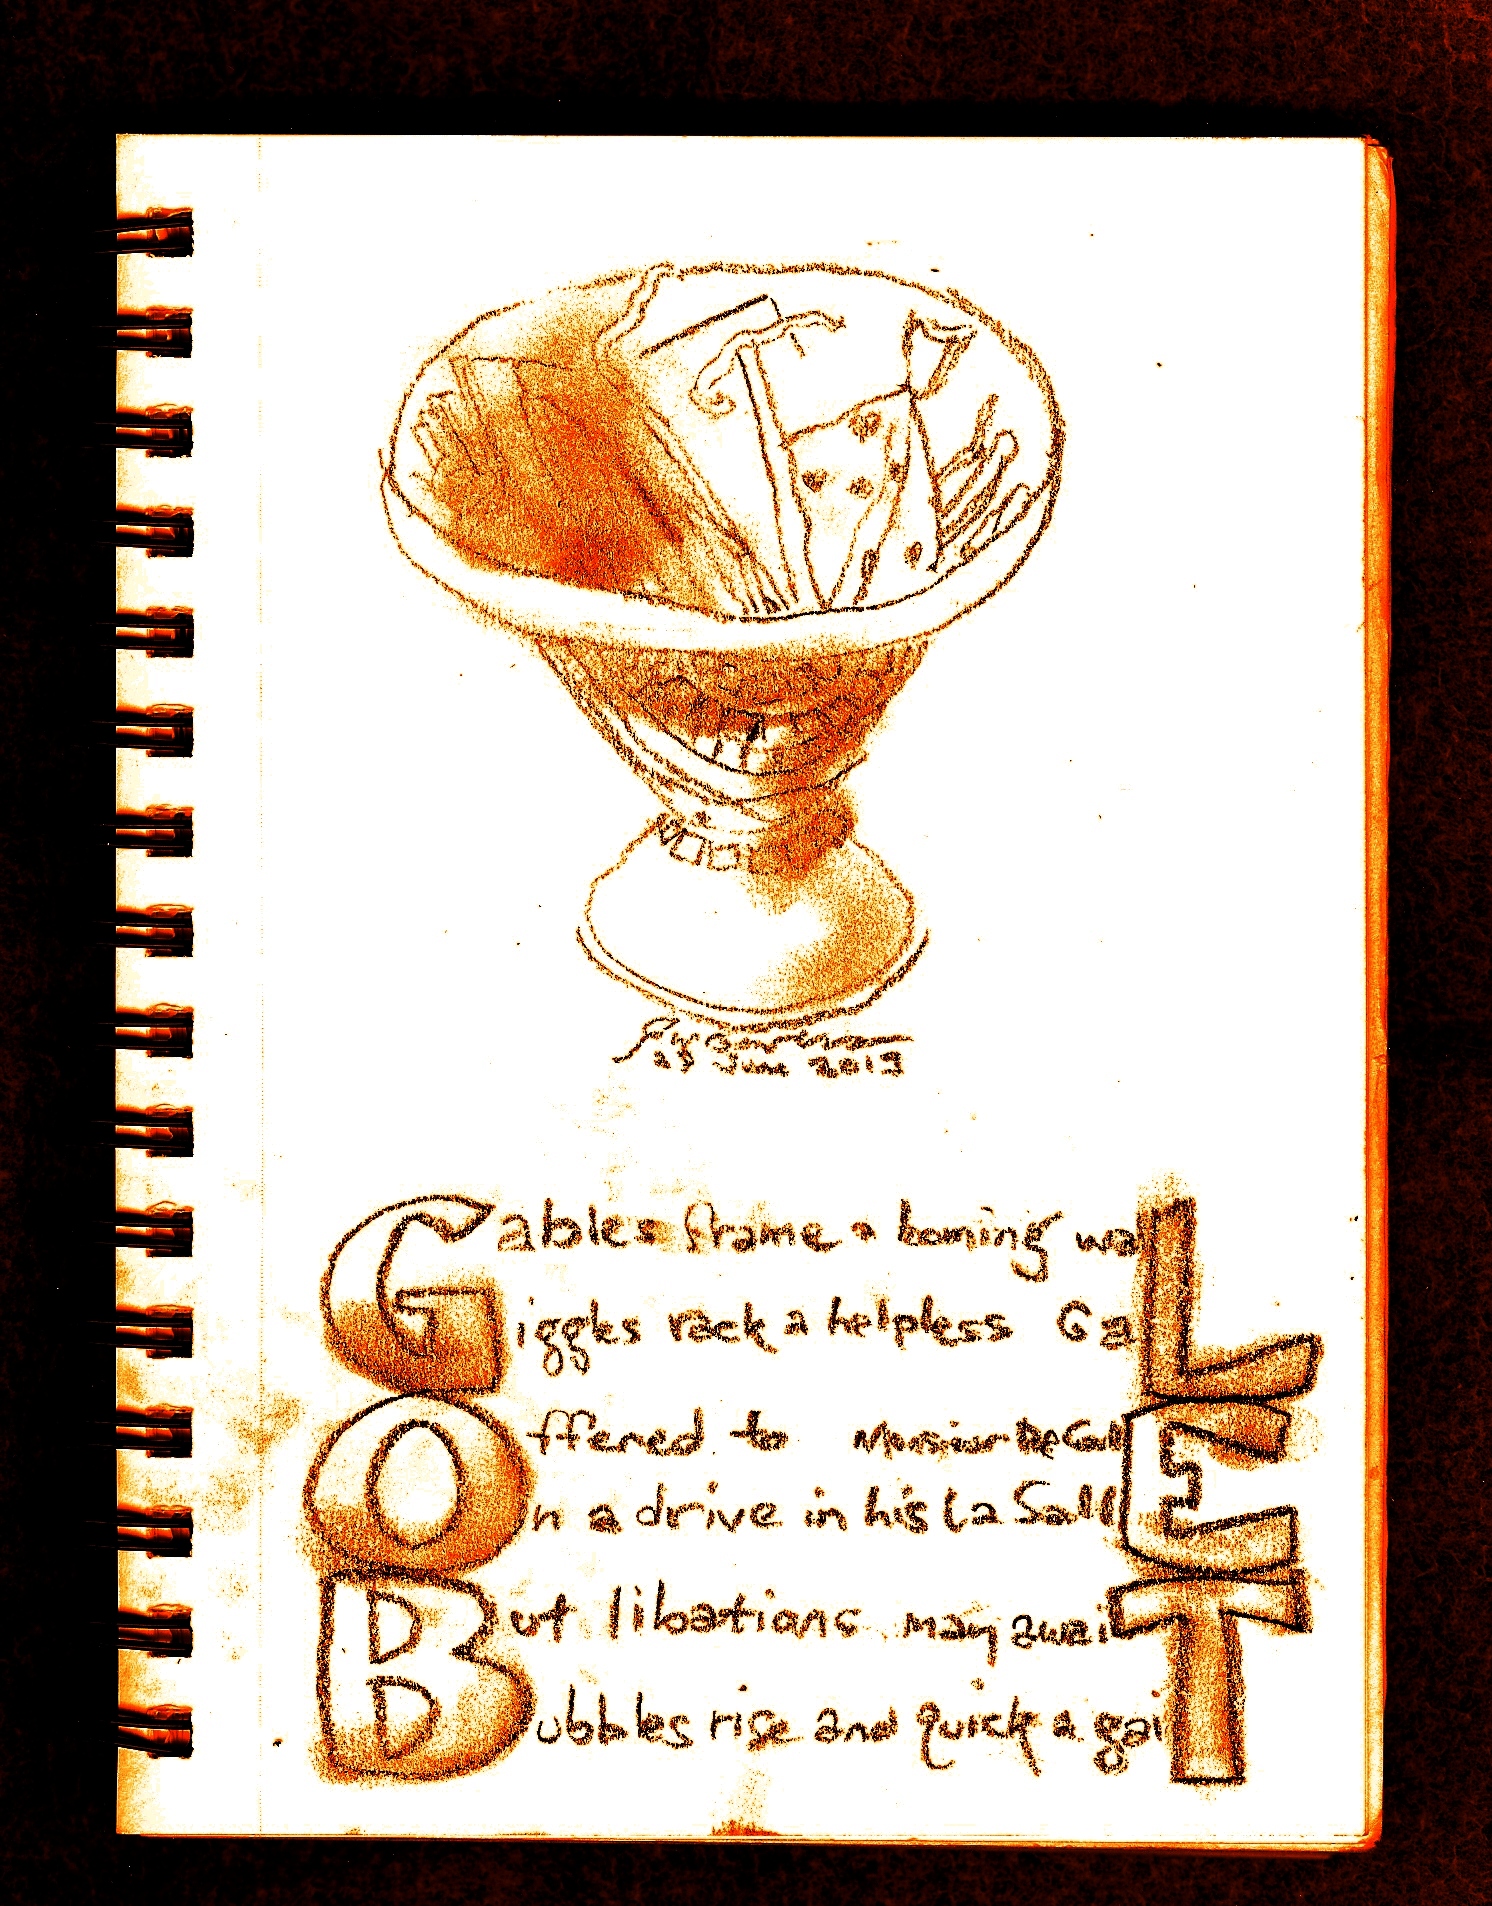 25 June 2013
Gables frame a homing waL
Giggles rack a helpless GaL
Offered to Monsieur DeGallE
On a drive in his La SallE
But libations may awaiT
Bubbles rise and quick a gaiT